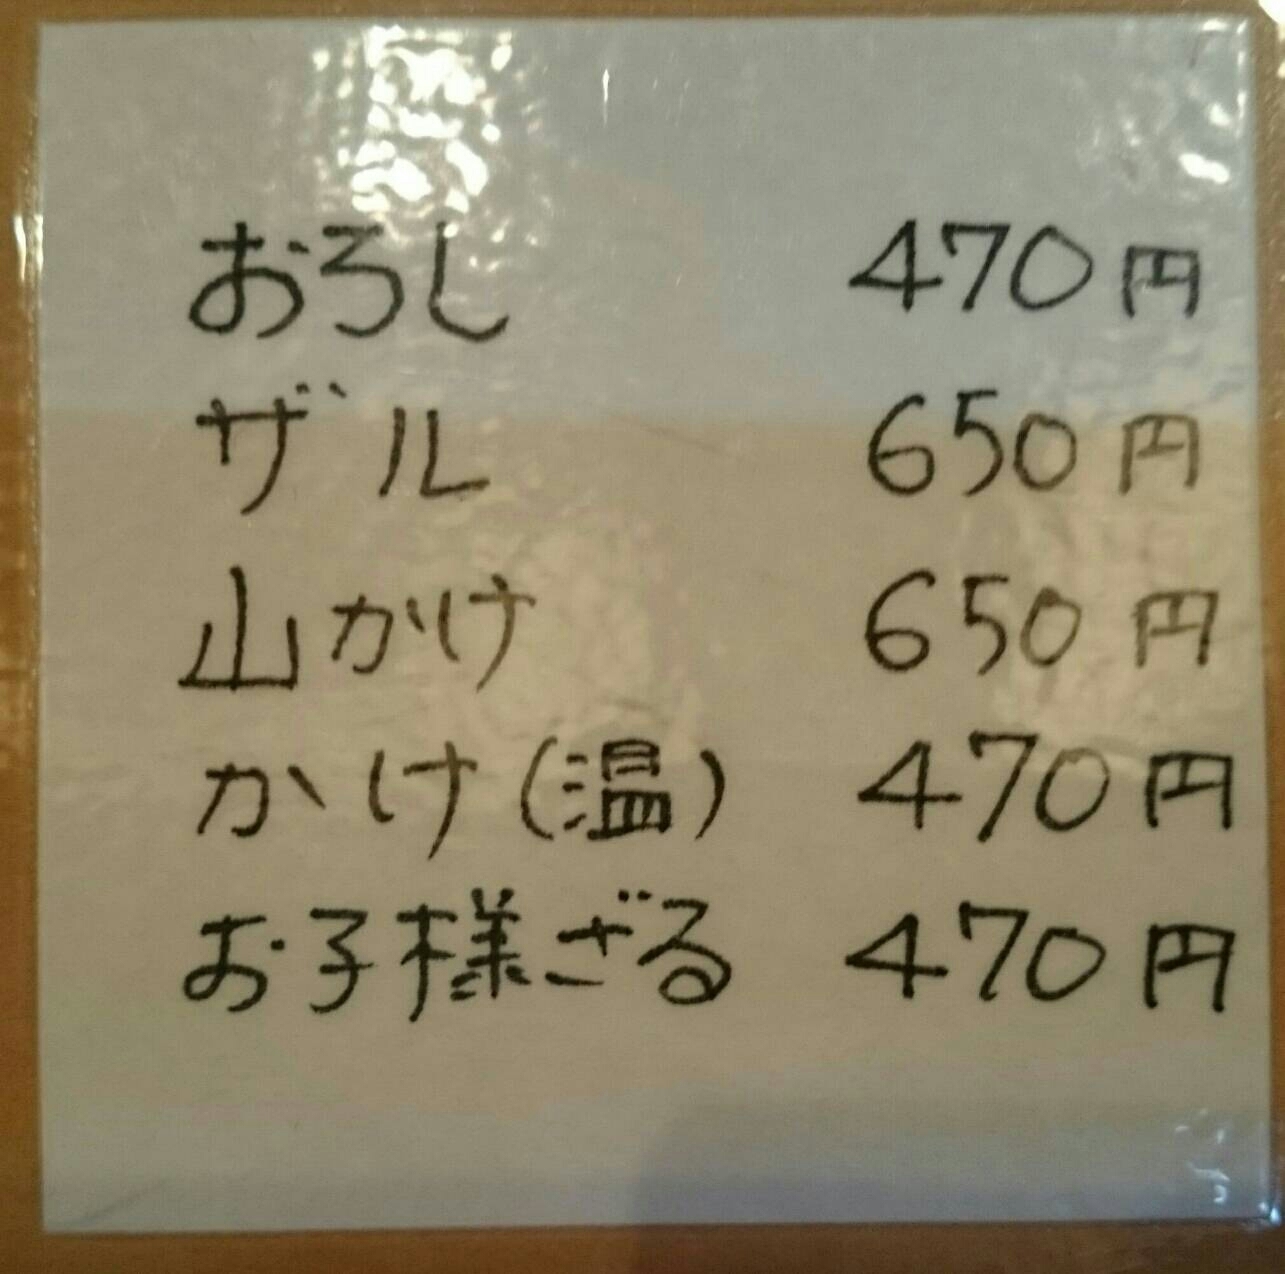 おろし 470円
ザル 650円
山かけ 650円
かけ(温) 470円
お子様ざる 470円